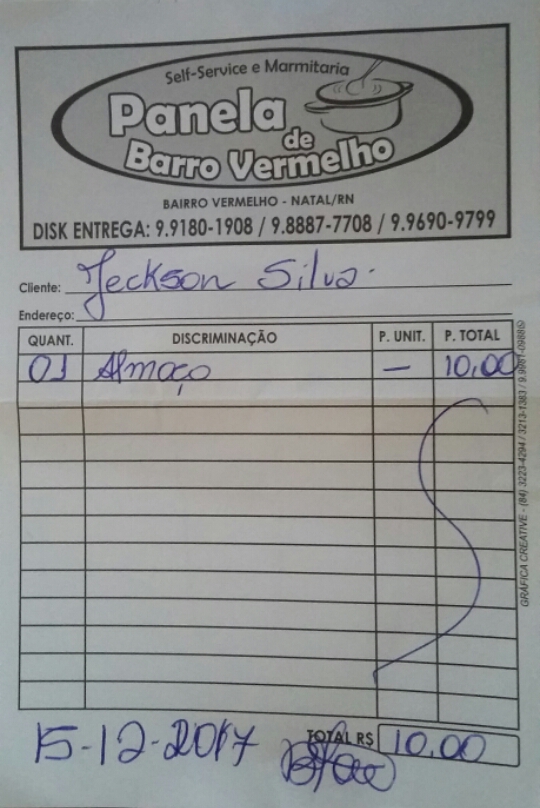 Self-Service e Marmitaria
Panela
de
Barro Vermelho
BAIRRO VERMELHO - NATAL/RN
DISK ENTREGA: 9.9180-1908 / 9.8887-7708 / 9.9690-9799
Cliente: Jeckson Silva.
Endereço:
QUANT. DISCRIMINAÇÃO P. UNIT. P. TOTAL
01 Almoço — 10,00
TOTAL R$ 10,00
15-12-2017
GRÁFICA CREATIVE - (84) 3223-4294 / 3213-1383 / 9.9981-0988